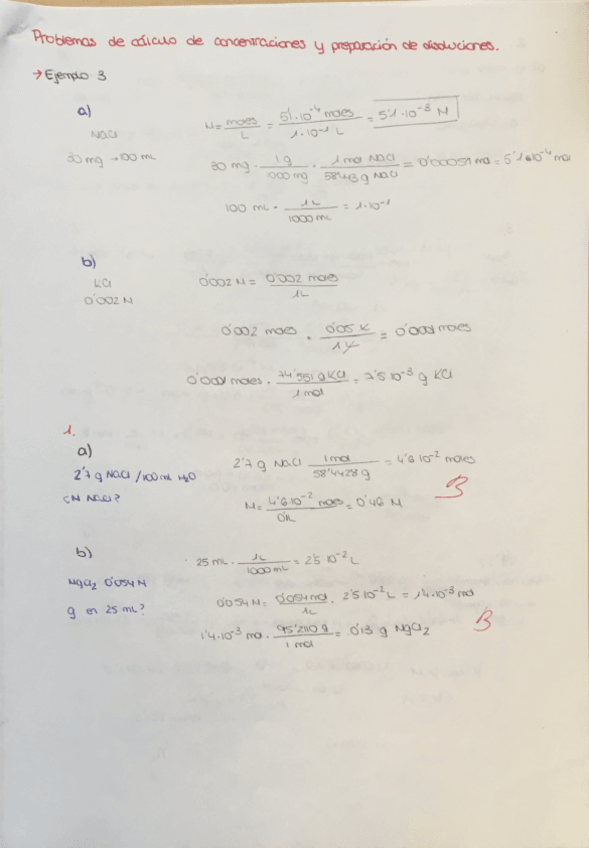 Problemas de cálculo de concentraciones y preparación de disoluciones.
→ Ejemplo 3
a)
NaCl
30 mg → 100 mL
M = moles / L = 5'1·10⁻⁴ moles / 1·10⁻¹ L = 5'1·10⁻³ M
30 mg · 1 g / 1000 mg · 1 mol NaCl / 58'443 g NaCl = 0'00051 mol = 5'1·10⁻⁴ mol
100 mL · 1L / 1000 mL = 1·10⁻¹
b)
KCl
0'002 M
0'002 M = 0'002 moles / 1L
0'002 moles · 0'05 L / 1 L = 0'0001 moles
0'0001 moles · 74'551 g KCl / 1 mol = 7'5 10⁻³ g KCl
1.
a)
2'7 g NaCl / 100 mL H₂O
¿M NaCl?
2'7 g NaCl 1 mol / 58'4428 g = 4'6 10⁻² moles
M = 4'6 10⁻² moles / 0'1L = 0'46 M
B
b)
MgCl₂ 0'054 M
g en 25 mL?
25 mL · 1L / 1000 mL = 2'5 10⁻² L
0'054 M = 0'054 mol / 1L · 2'5 10⁻² L = 1'4·10⁻³ mol
1'4·10⁻³ mol · 95'2110 g / 1 mol = 0'13 g MgCl₂
B